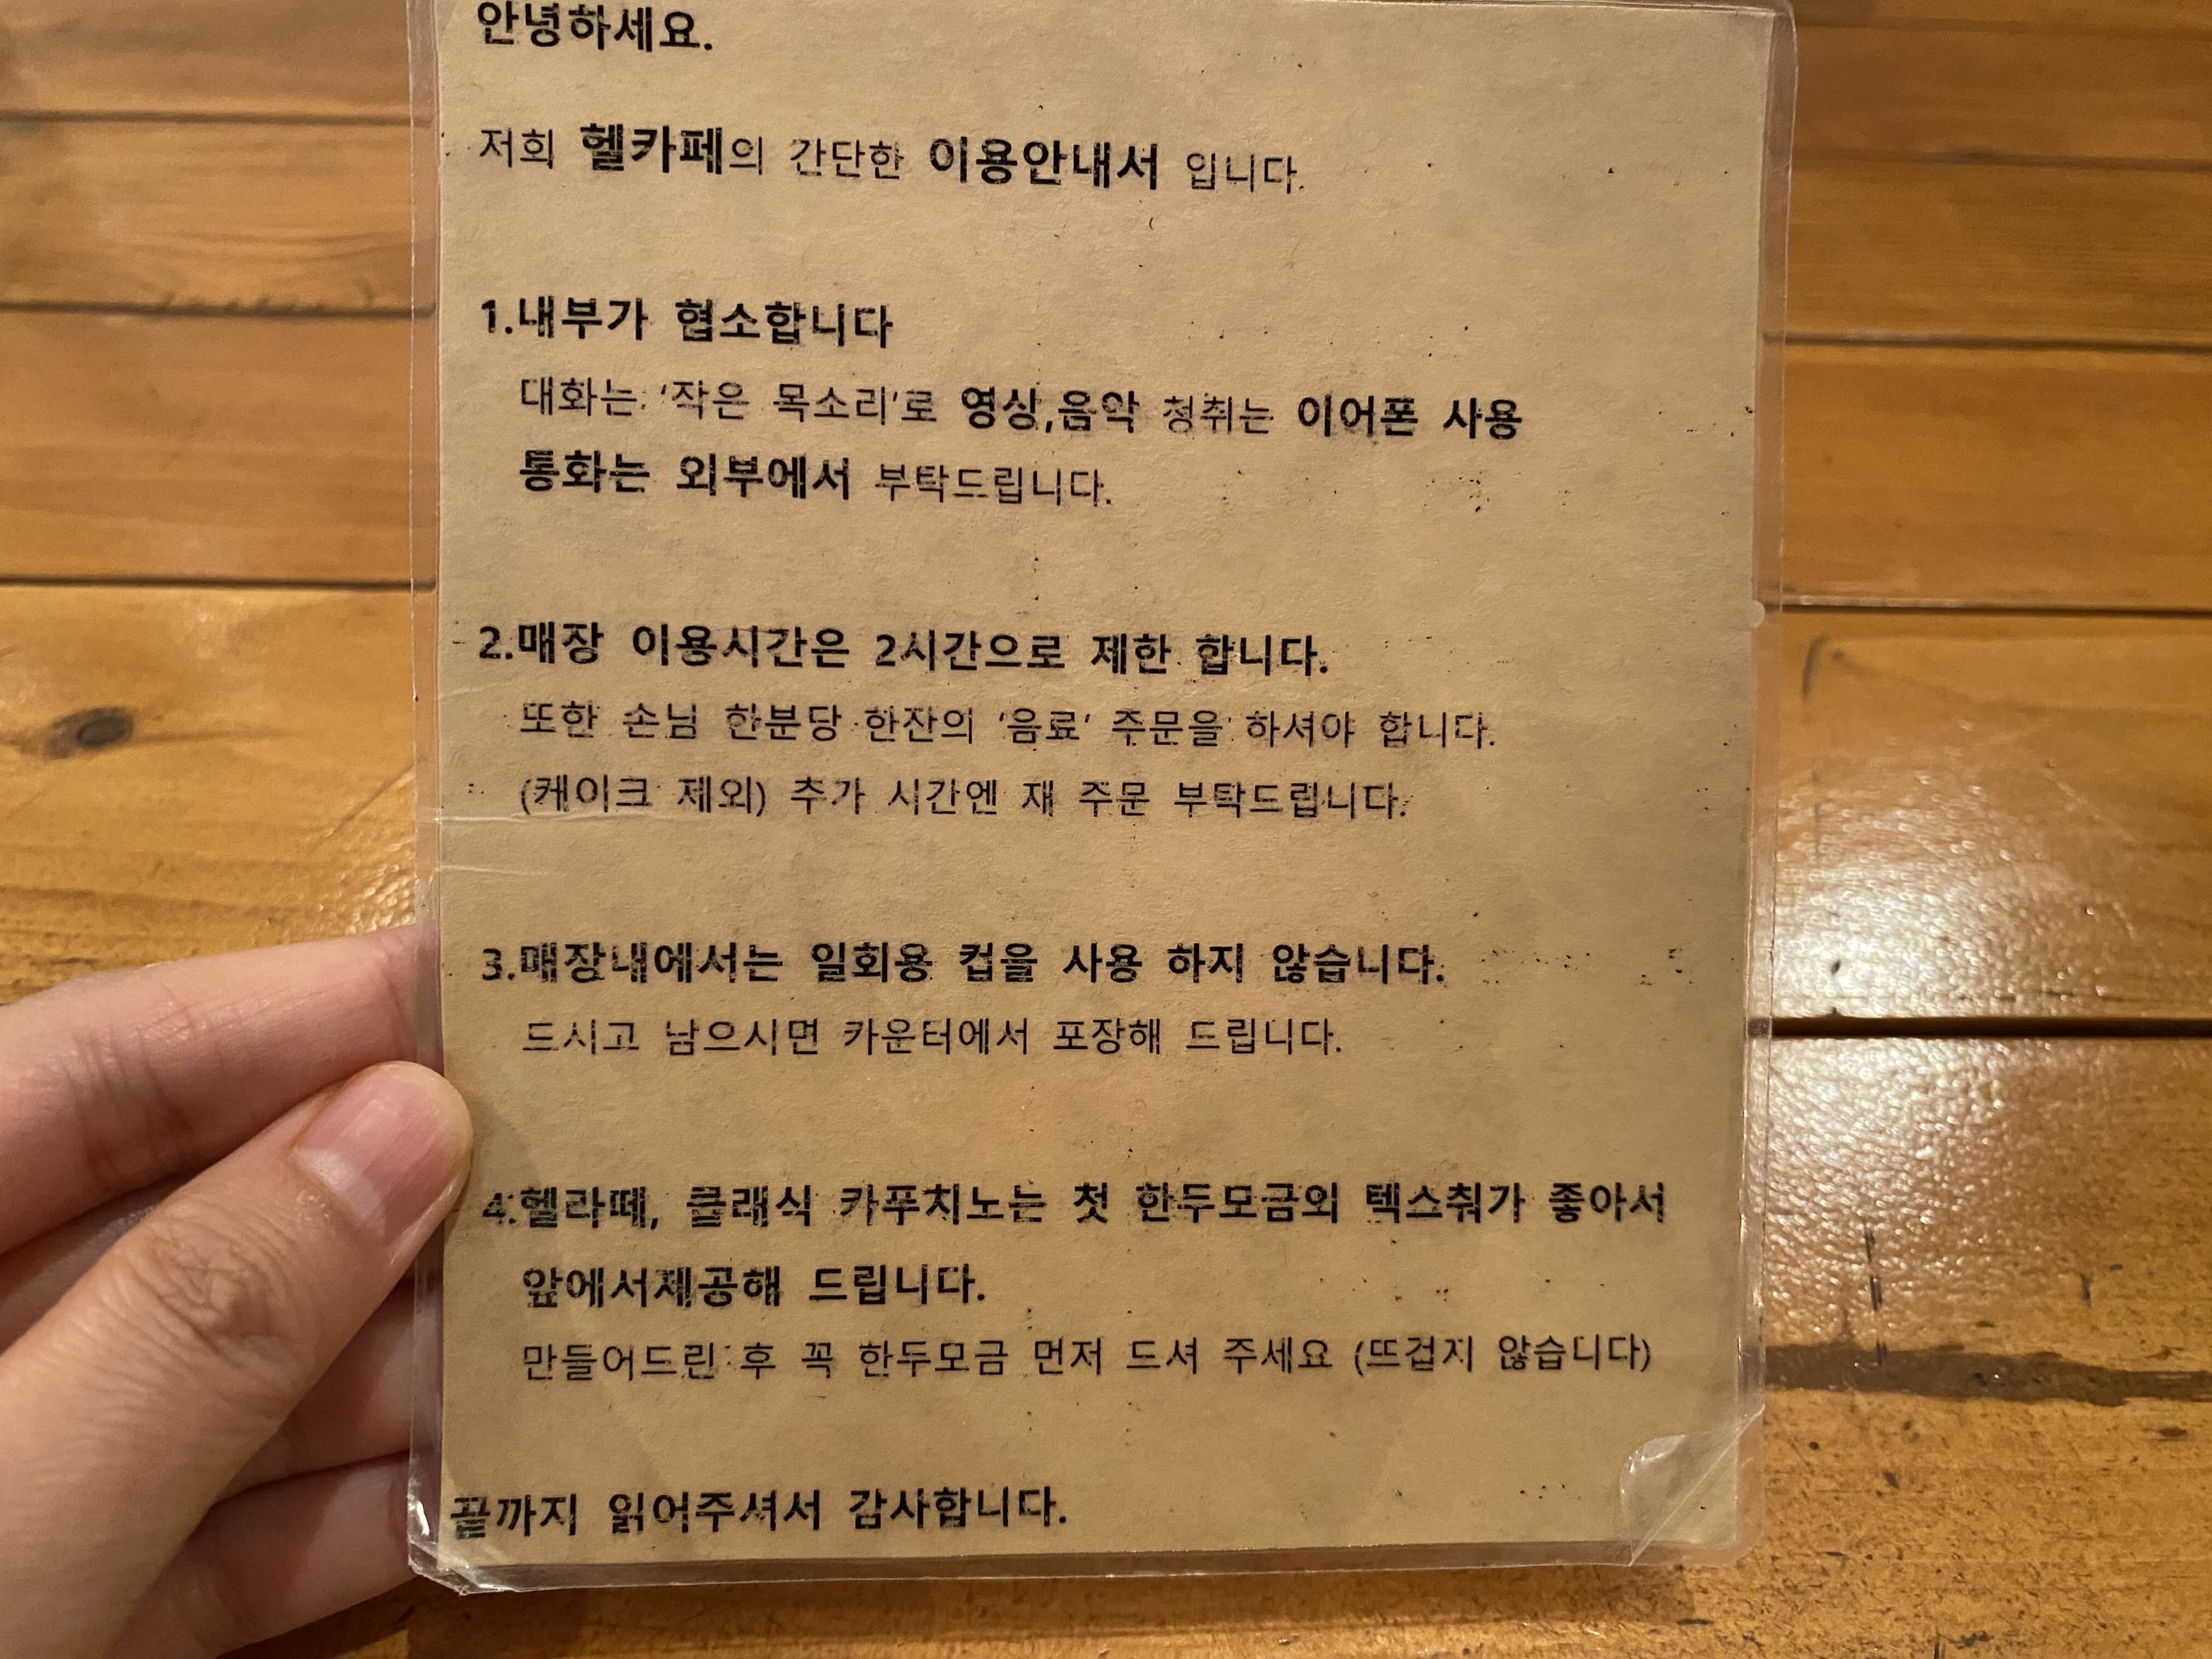 안녕하세요.
저희 헬카페의 간단한 이용안내서 입니다.
1.내부가 협소합니다
대화는 '작은 목소리'로 영상,음악 청취는 이어폰 사용
통화는 외부에서 부탁드립니다.
2.매장 이용시간은 2시간으로 제한 합니다.
또한 손님 한분당 한잔의 '음료' 주문을 하셔야 합니다.
(케이크 제외) 추가 시간엔 재 주문 부탁드립니다.
3.매장내에서는 일회용 컵을 사용 하지 않습니다.
드시고 남으시면 카운터에서 포장해 드립니다.
4.헬라떼, 클래식 카푸치노는 첫 한두모금외 텍스춰가 좋아서
앞에서제공해 드립니다.
만들어드린 후 꼭 한두모금 먼저 드셔 주세요 (뜨겁지 않습니다)
끝까지 읽어주셔서 감사합니다.